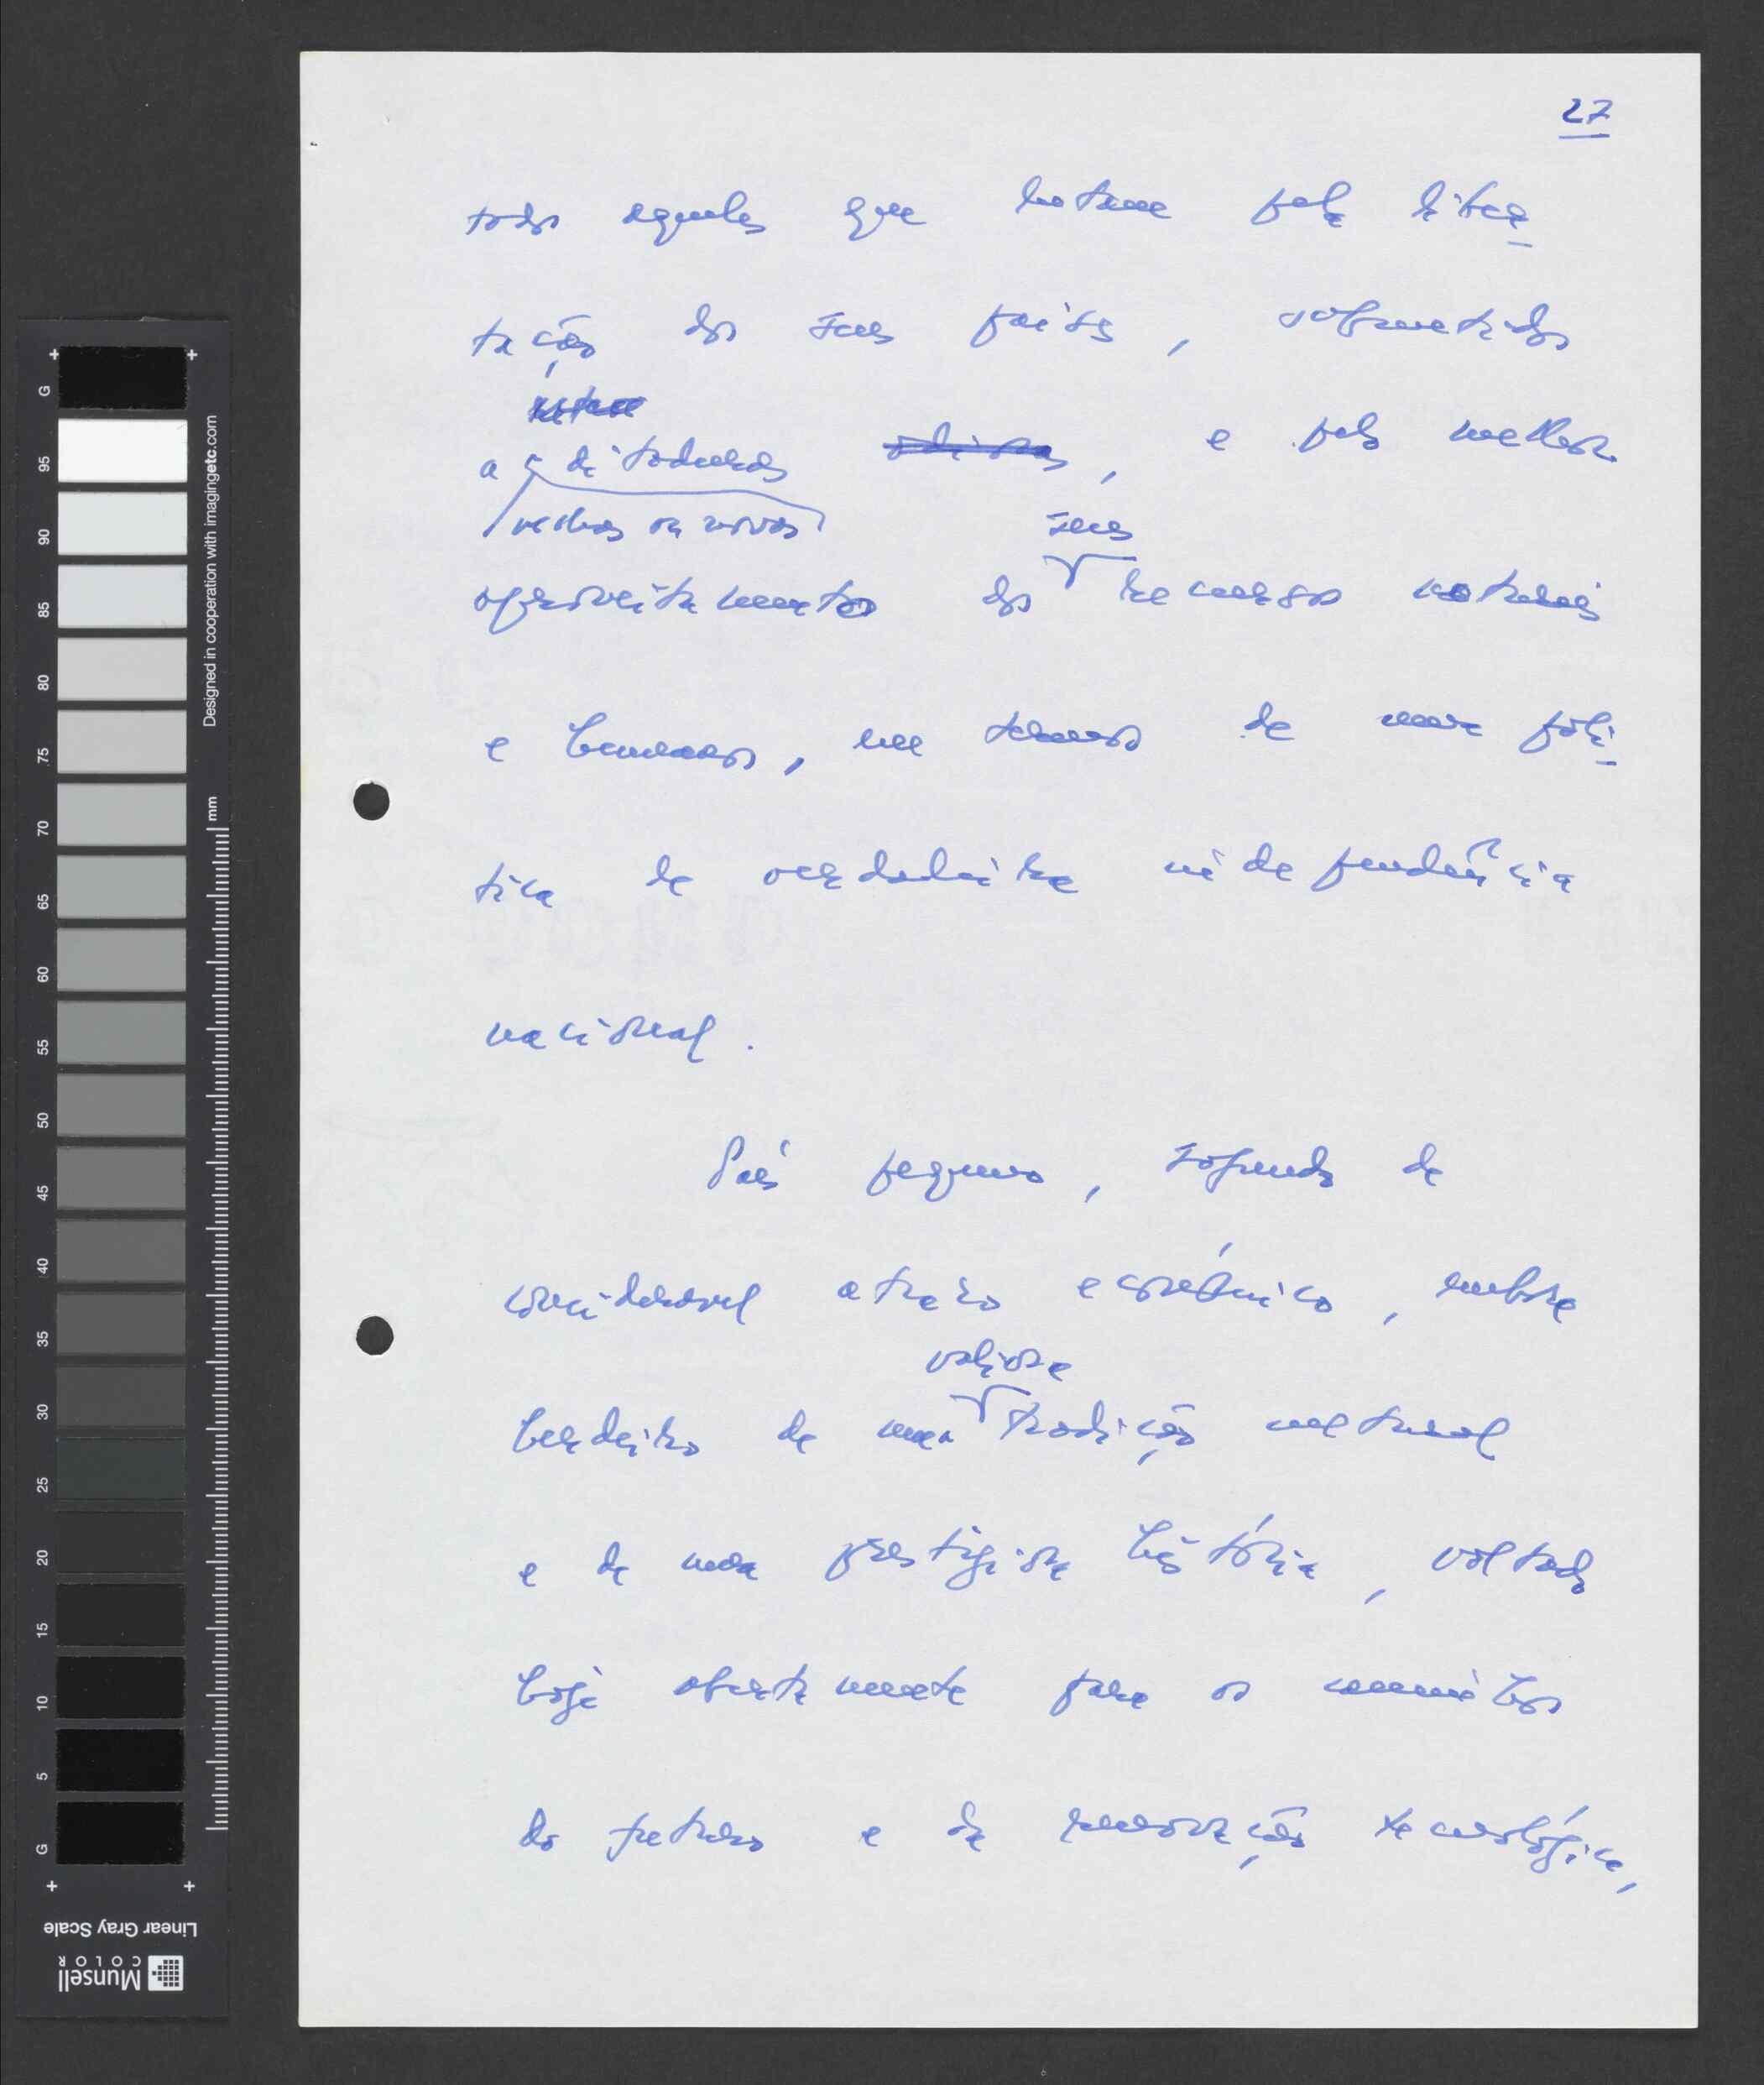 27
todos aqueles que lutam pela liber
tação dos seus países, submetidos
a ditaduras odiosas, e pelo melhor
velhas ou novas
seus
aproveitamento dos recursos naturais
e humanos, em termos de uma polí
tica de verdadeira independência
nacional.
País pequeno, sofrendo de
considerável atraso económico, embora
valiosa
herdeiro de uma tradição cultural
e de uma prestigiosa história, voltado
hoje abertamente para os caminhos
do futuro e da renovação tecnológica,
G
95
90
85
80
75
70
65
60
55
50
45
40
35
30
25
20
15
10
5
G
mm
Designed in cooperation with imagingetc.com
Linear Gray Scale
Munsell
COLOR